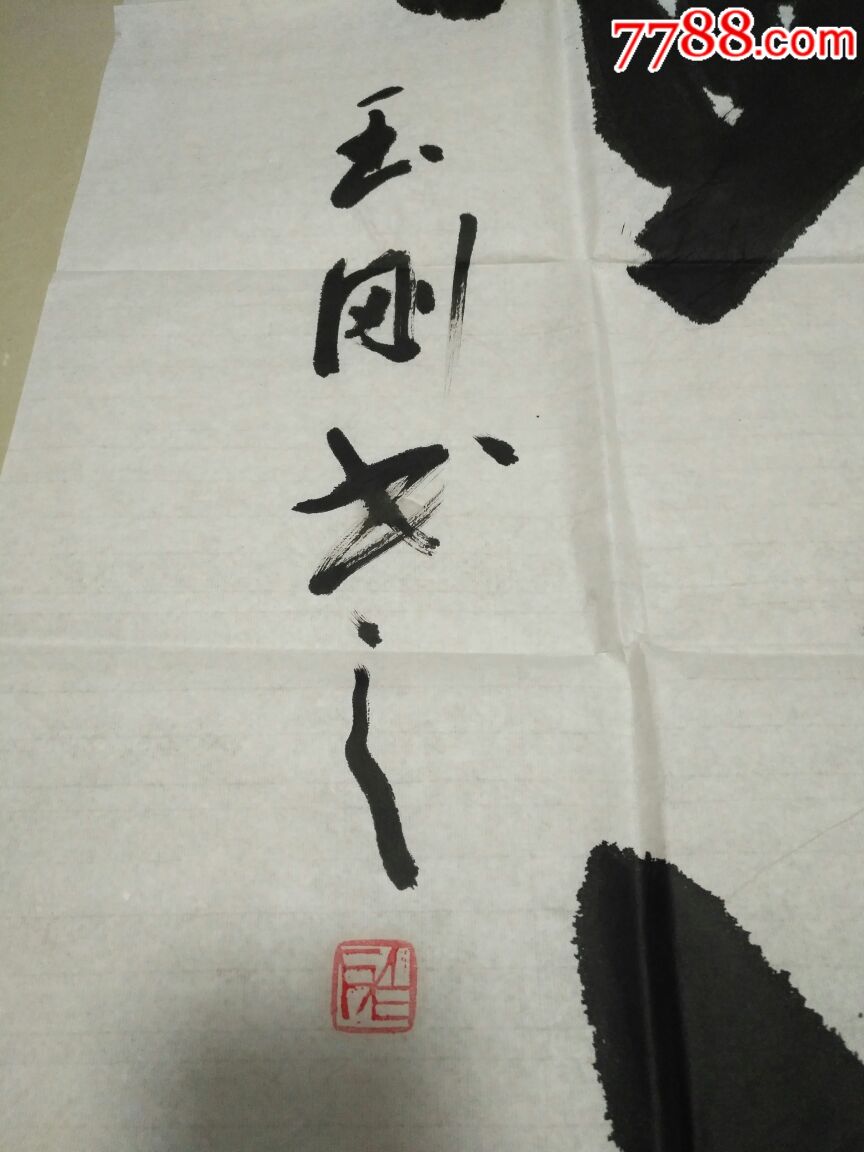 7788.com
玉刚书之